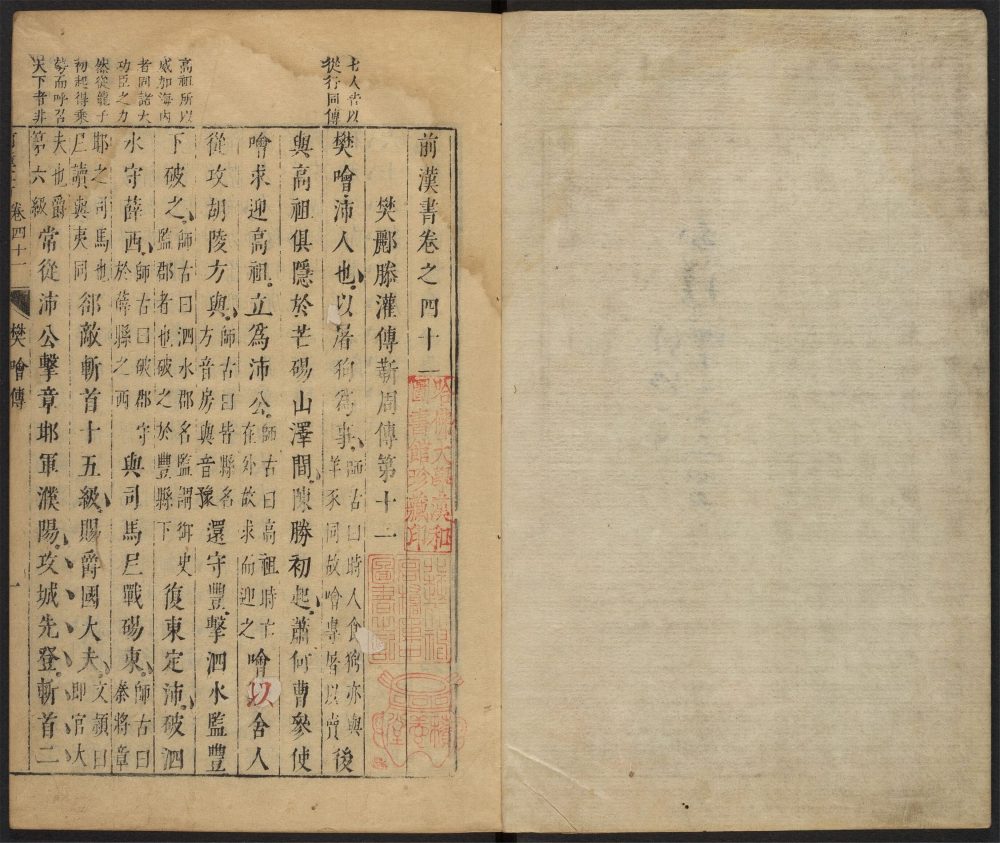 七人皆以
從行同傳
高祖所以
威加海內
者同諸大
功臣之力
然從龍子
初起得乘
勢而呼召
天下者非
前漢書卷之四十一
樊酈滕灌傅靳周傳第十二
樊噲沛人也以屠狗爲事師古曰時人食狗亦與羊豕同故噲專屠以賣後
與高祖俱隱於芒碭山澤間陳勝初起蕭何曹參使
噲求迎高祖立爲沛公師古曰高祖時亡在外故求而迎之噲以舍人
從攻胡陵方與師古曰皆縣名方音房與音豫還守豐擊泗水監豐
下破之師古曰泗水郡名監謂御史監郡者也破之於豐縣下復東定沛破泗
水守薛西師古曰破郡守於薛縣之西與司馬𡰥戰碭東師古曰秦將章
邯之司馬也𡰥讀與夷同郤敵斬首十五級賜爵國大夫文穎曰卽官大
夫也爵第六級常從沛公擊章邯軍濮陽攻城先登斬首二
卷四十一
樊噲傳
一
哈佛大學漢和
圖書館珍藏印